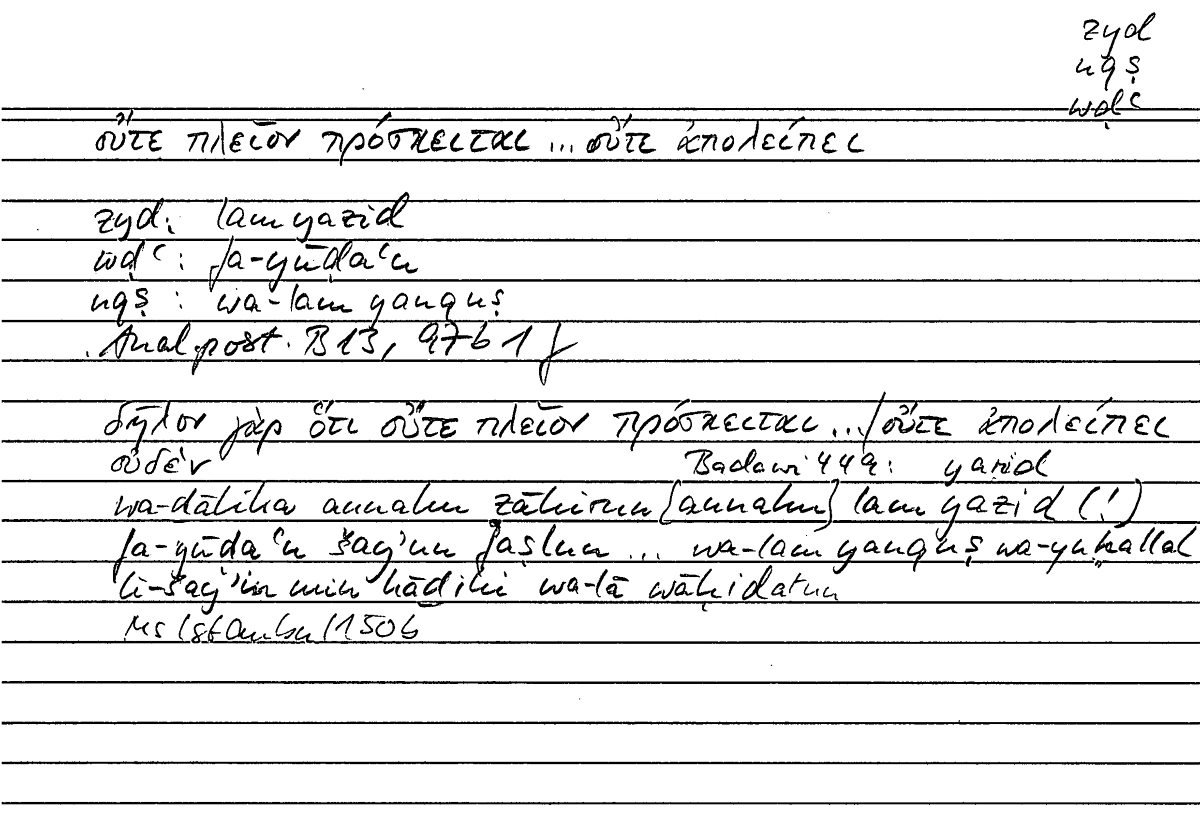 zyd
nqṣ
wḍʿ
οὔτε πλεῖον πρόσκειται ... οὔτε ἀπολείπει
zyd: lam yazid
wḍʿ: fa-yūḍaʿu
nqṣ: wa-lam yanquṣ
Anal. post. B 13, 97b 1 f
δῆλον γὰρ ὅτι οὔτε πλεῖον πρόσκειται .../οὔτε ἀπολείπει
οὐδέν Badawi 449: yazid
wa-ḏālika annahu ẓāhirun [annahu] lam yazid (!)
fa-yūḍaʿu šayʾun faṣlun ... wa-lam yanquṣ wa-yuḫallal
li-šayʾin min hāḏihi wa-lā wāḥidatun
Ms Istanbul 150b